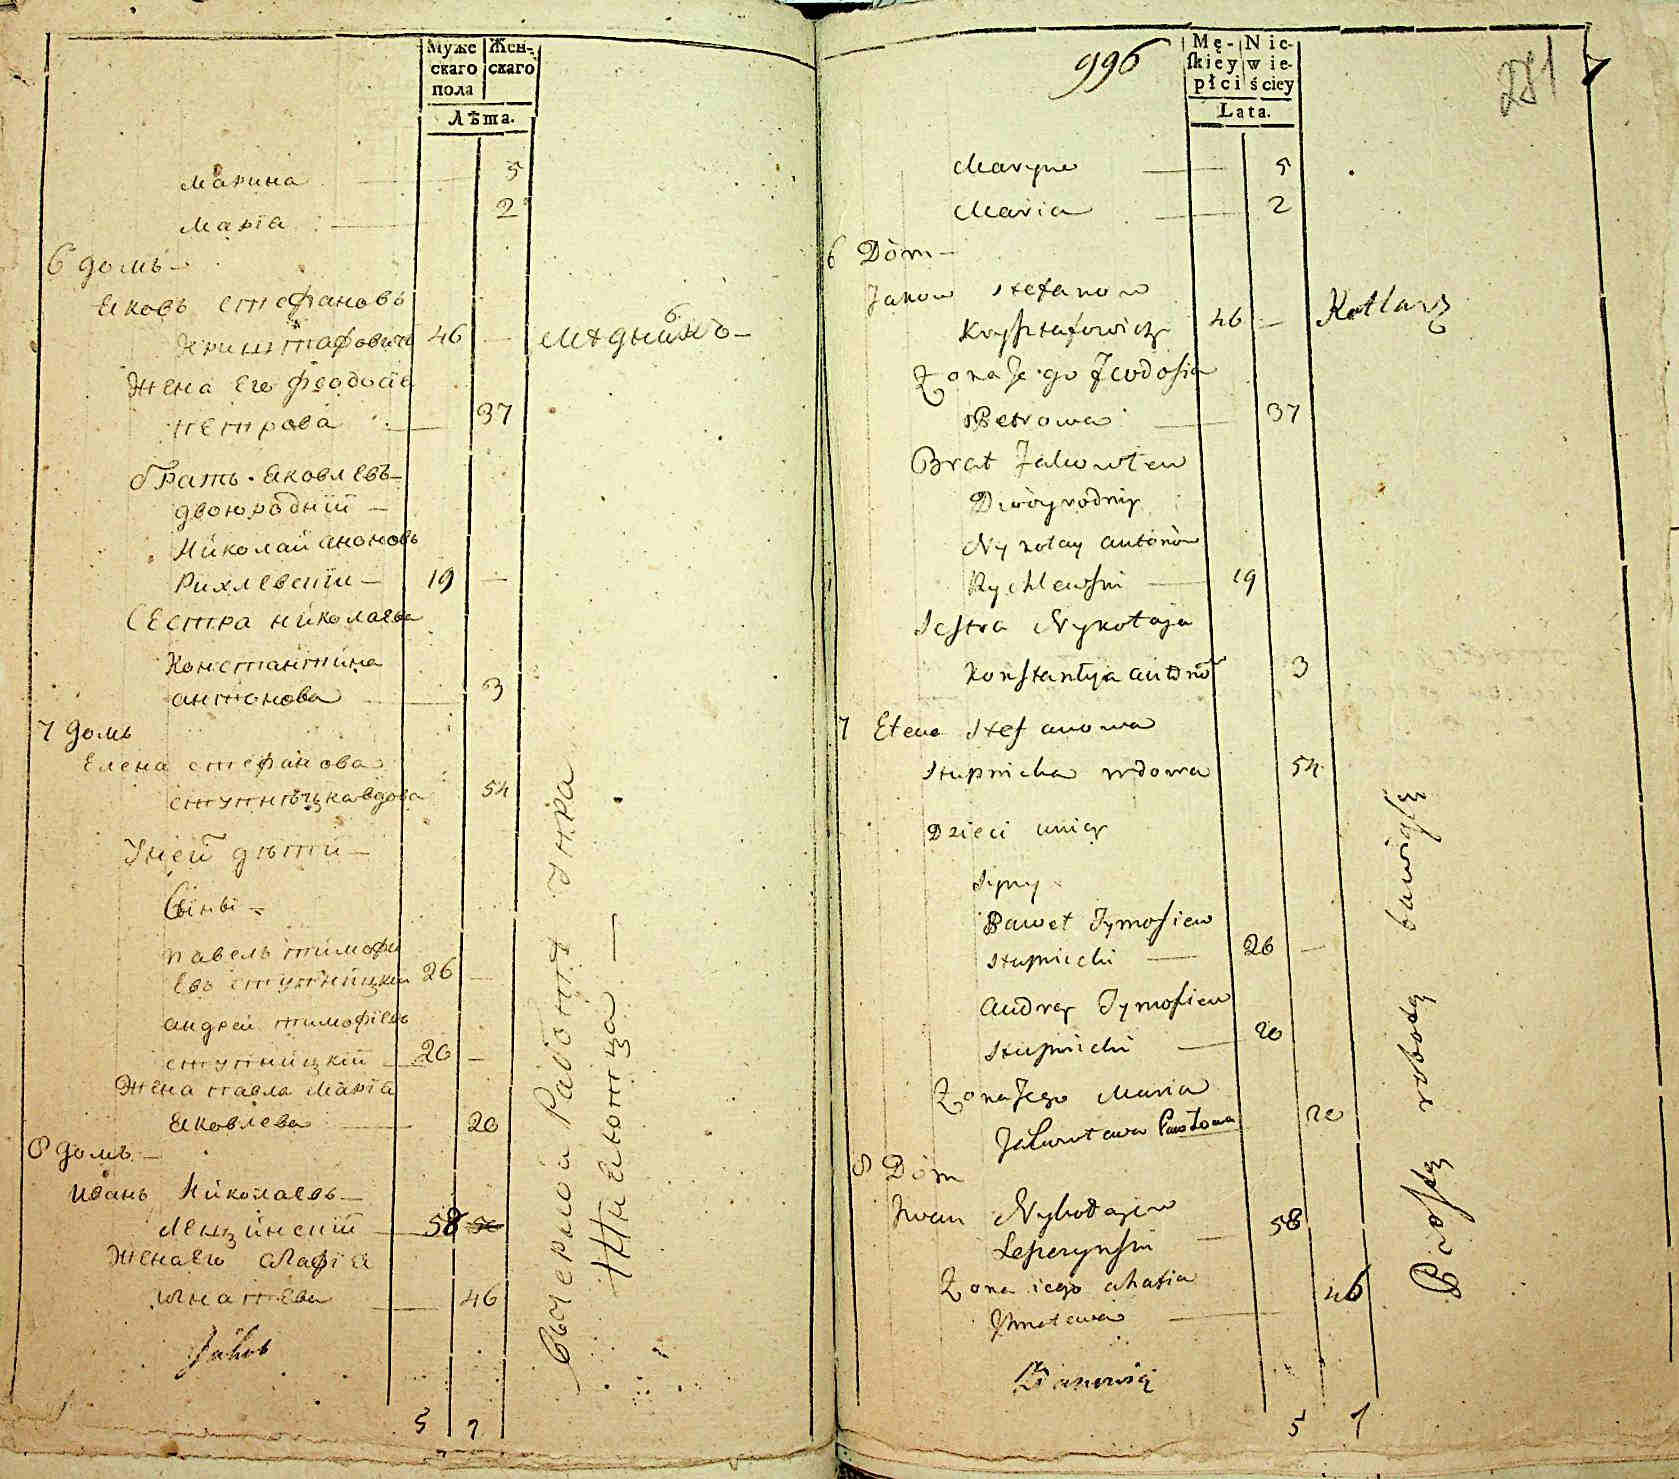 Муже Жен-
скаго скаго
пола
Лѣта.
Марина 5
Марїа 2
6 домъ
Яковъ Стефановъ
Криштафовичъ 46 — Мѣдникъ
Жена Его Феодосїа
Петрова 37
братъ Яковлевъ
двоюродній
Николай Аноновъ
Рихлевскїи 19 —
Сестра Николаева
Константина
антонова 3
7 домъ
Елена Стефанова
ступнѣцка вдова 54
У ней дѣти
Сыны
павелъ тимофи
евъ ступницкїи 26 —
андреи тимофѣевъ
ступницкїй 20 —
Жена павла Марїа
Яковлева 20
8 домъ
Иванъ Николаевъ
Лещинскїй 58
Жена его Агафїа
Игнатева 46
5 7
996
Mę- Nie-
ſkiey wie-
płci ściey
Lata.
281
Maryna 5
Maria 2
6 Dóm
Jakow Stefanow
Krysztafowicz 46 — Kotlarz
Zona Jego Feodosia
Petrowa 37
Brat Jakowlew
Dwoyrodny
Nykołay Antonow
Rychlewski 19
Sestra Nykołaja
Konstantyja Antono 3
7 Elena Stefanowa
Stupnicka wdowa 54
Dzieci u niey
Syny
Paweł Tymofiew
Stupnicki 26 —
Andrey Tymofiew
Stupnicki 20
Zona Jego Maria
Jakowlewa Pawłowa 20
8 Dóm
Jwan Nykołajew
Leszczynski 58
Zona iego Ahafia
Jhnatewa 46
5 7
робота
robotą bawiąsię